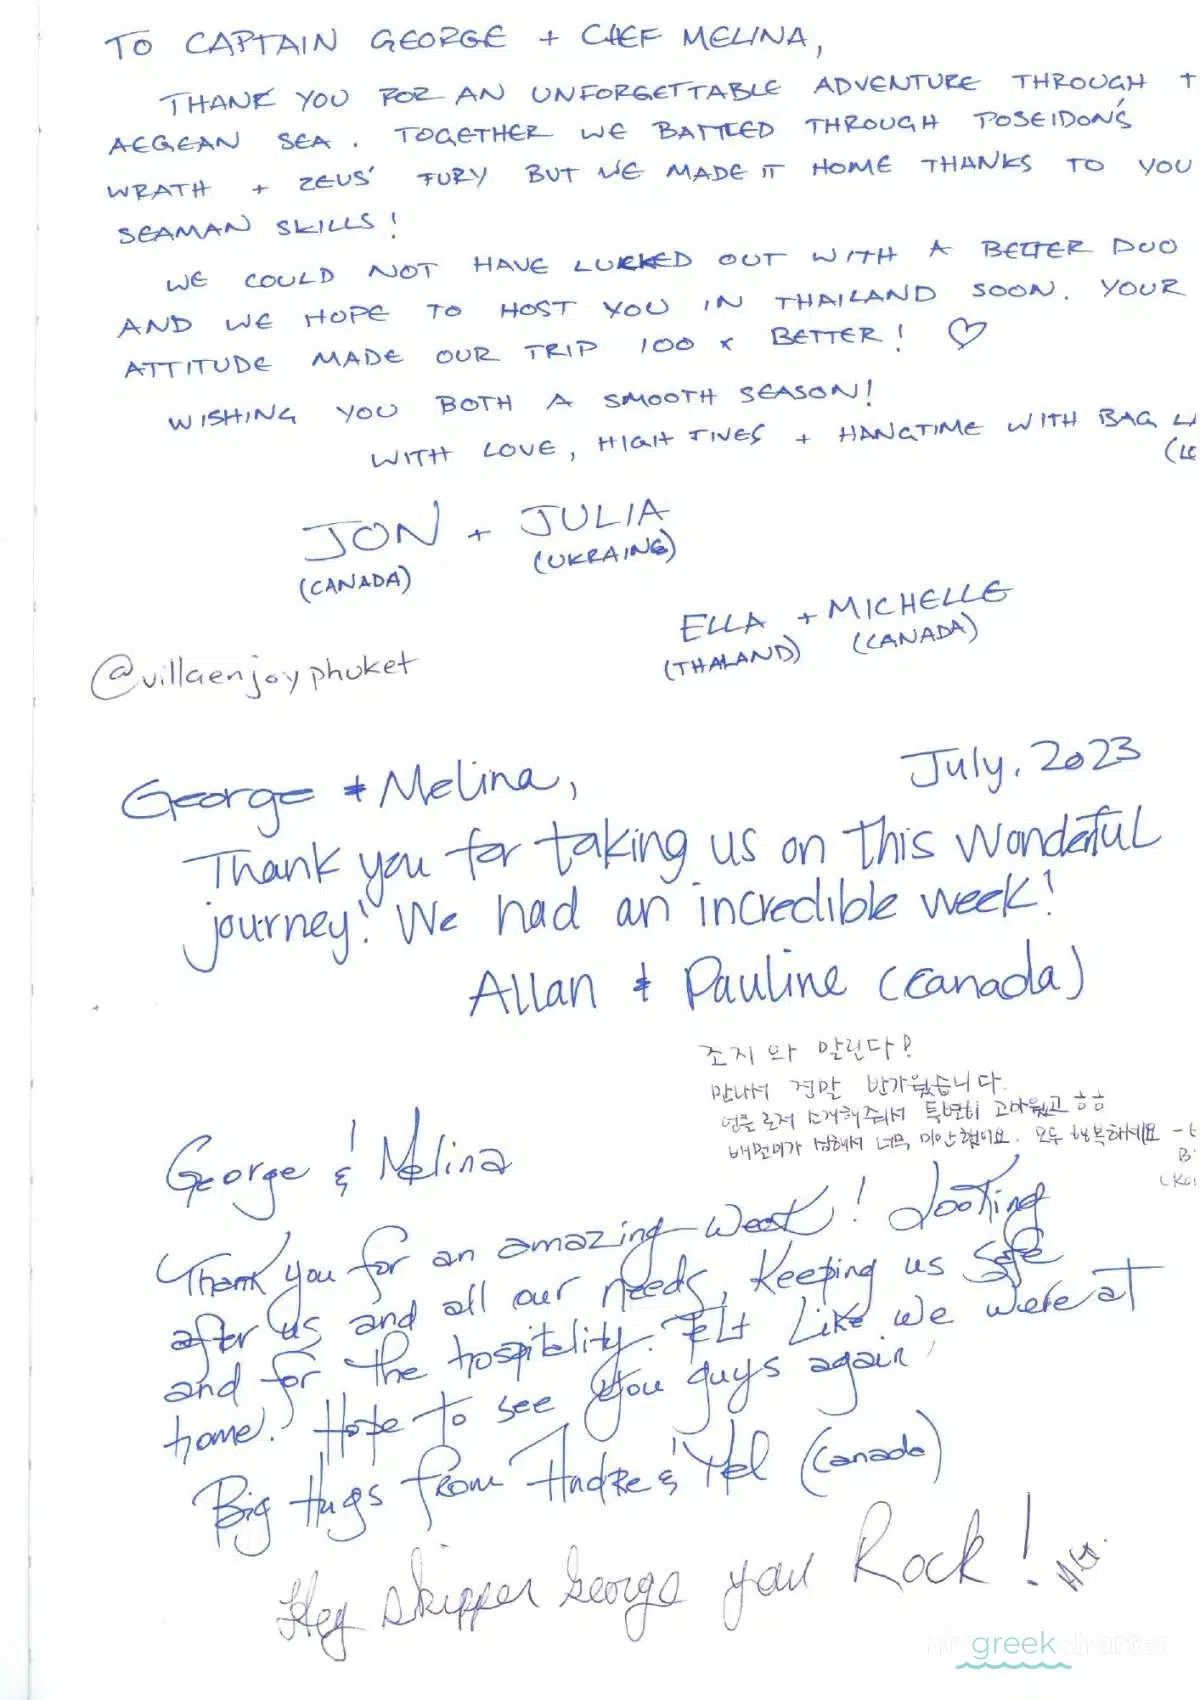 TO CAPTAIN GEORGE + CHEF MELINA,
THANK YOU FOR AN UNFORGETTABLE ADVENTURE THROUGH T
AEGEAN SEA. TOGETHER WE BATTLED THROUGH POSEIDON'S
WRATH + ZEUS' FURY BUT WE MADE IT HOME THANKS TO YOU
SEAMAN SKILLS!
WE COULD NOT HAVE LUCKED OUT WITH A BETTER DUO
AND WE HOPE TO HOST YOU IN THAILAND SOON. YOUR
ATTITUDE MADE OUR TRIP 100 x BETTER! ♡
WISHING YOU BOTH A SMOOTH SEASON!
WITH LOVE, HIGH FIVES + HANGTIME WITH BAG
JON + JULIA
(CANADA) (UKRAINE)
ELLA + MICHELLE
(THALAND) (CANADA)
@villaenjoyphuket
July, 2023
George & Melina,
Thank you for taking us on this wonderful
journey! We had an incredible week!
Allan & Pauline (Canada)
조지와 말린다!
만나서 정말 반가웠습니다.
소개해줘서 특별히 고마웠고 ㅎㅎ
배멀미가 심해서 너무 미안했어요. 모두 행복하세요
George & Melina
Thank you for an amazing week! Looking
after us and all our needs, Keeping us safe
and for the hospitality. Felt Like we were at
home. Hope to see you guys again!
Big Hugs from Andre & Mel (Canada)
Hey Skipper George you Rock! AG.
mygreekcharter